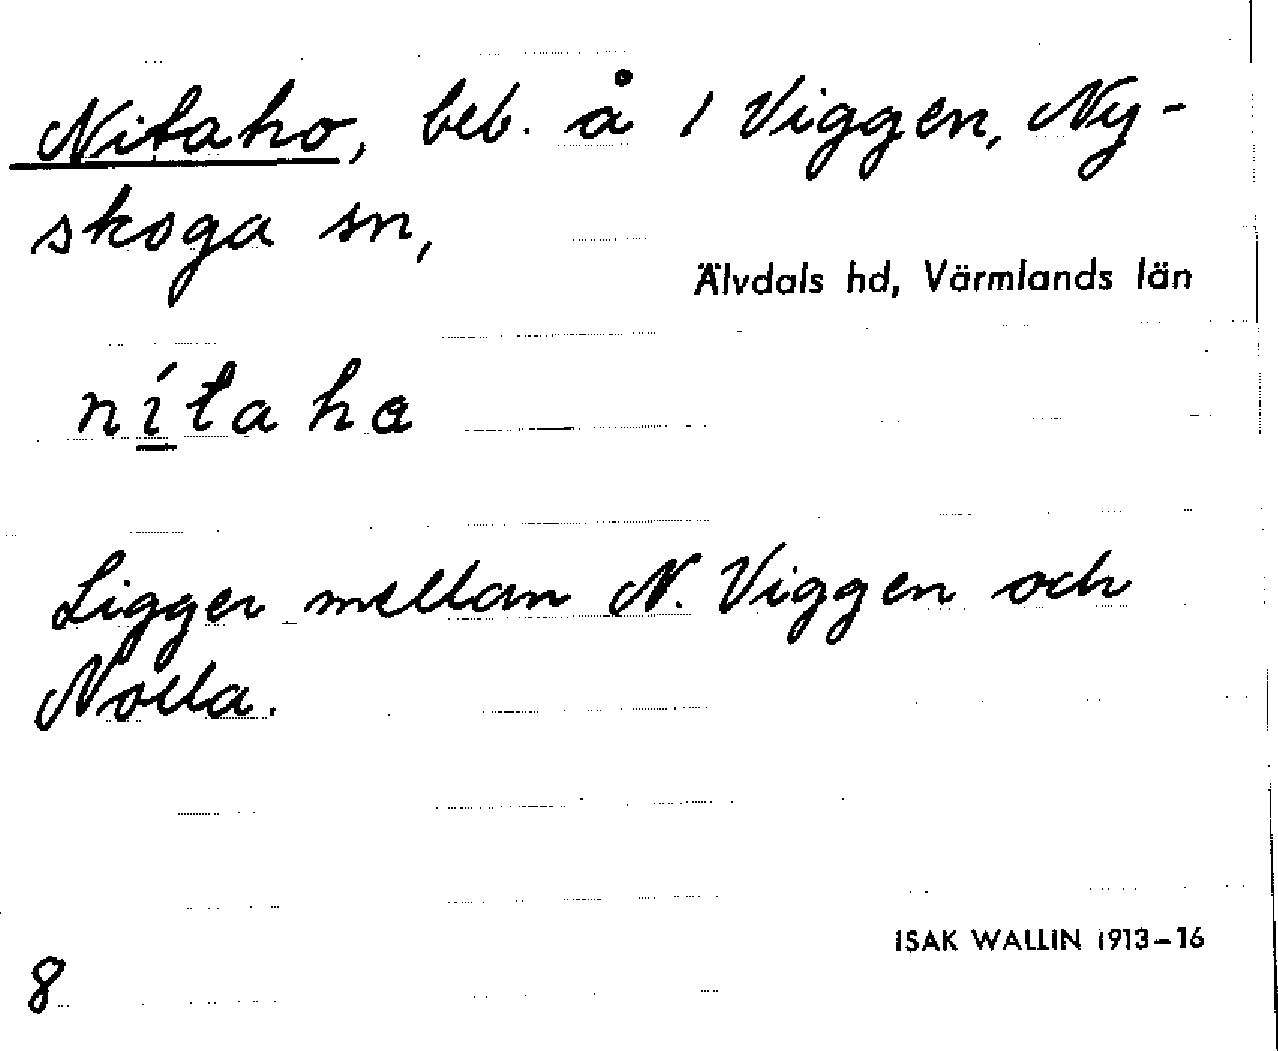 Nitaho, beb. å 1 Viggen, Ny-
skoga sn,
Älvdals hd, Värmlands län
nítaha
Ligger mellan N. Viggen och
Nolla.
ISAK WALLIN 1913–16
8